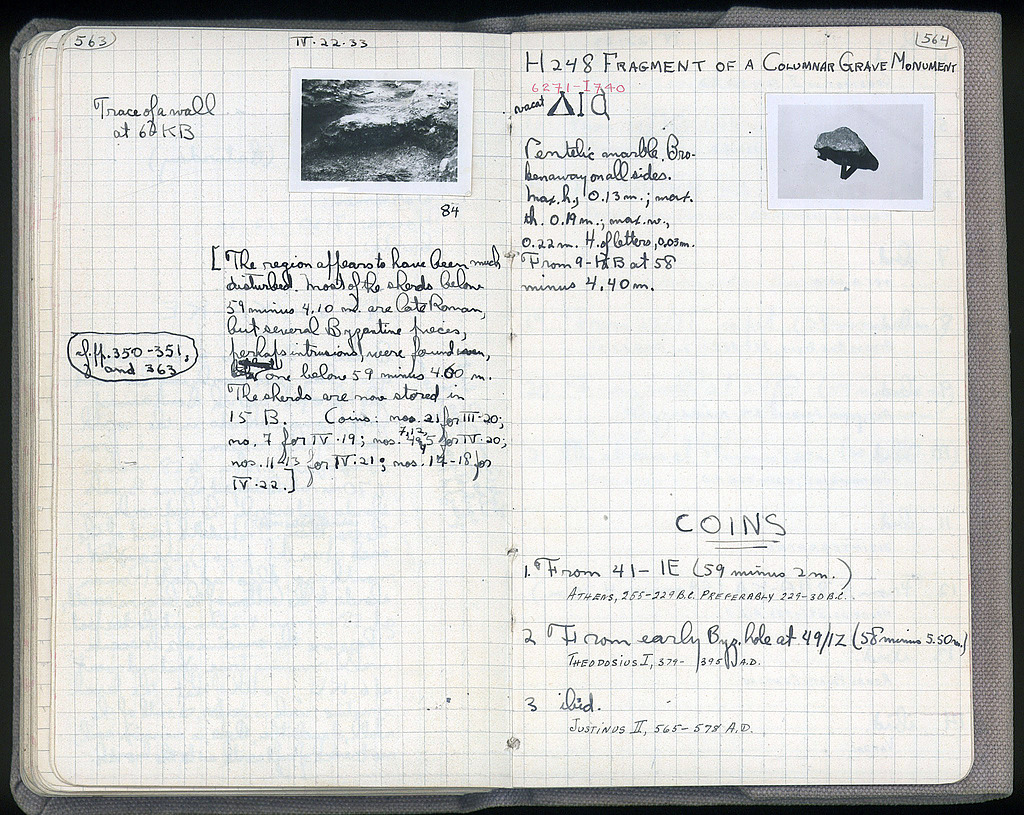 563
IV-22-33
Trace of a wall
at 60 KB
84
[The region appears to have been much
disturbed. Most of the sherds below
59 minus 4.10 m. are late Roman,
but several Byzantine pieces,
perhaps intrusions, were found even,
one below 59 minus 4.00 m.
The sherds are now stored in
15 B. Coins: nos. 21 for III-20;
no. 7 for IV-19; nos. for IV-20;
nos. 11-13 for IV-21; nos. 14-18 for
IV-22.]
cf. pp. 350-351,
and 363
564
H 248 FRAGMENT OF A COLUMNAR GRAVE MONUMENT
6271-I740
vacat ΔΙΟ
Pentelic marble. Bro-
ken away on all sides.
Max. h., 0.13 m.; max.
th. 0.19 m.; max. w.,
0.22 m. H. of letters, 0.03 m.
From 9-HB at 58
minus 4.40 m.
COINS
1. From 41-IE (59 minus 2 m.)
ATHENS, 255-229 B.C. PREFERABLY 229-30 B.C.
2 From early Byz. hole at 49/IZ (58 minus 5.50 m.)
THEODOSIUS I, 379-395 A.D.
3 ibid.
JUSTINUS II, 565-578 A.D.